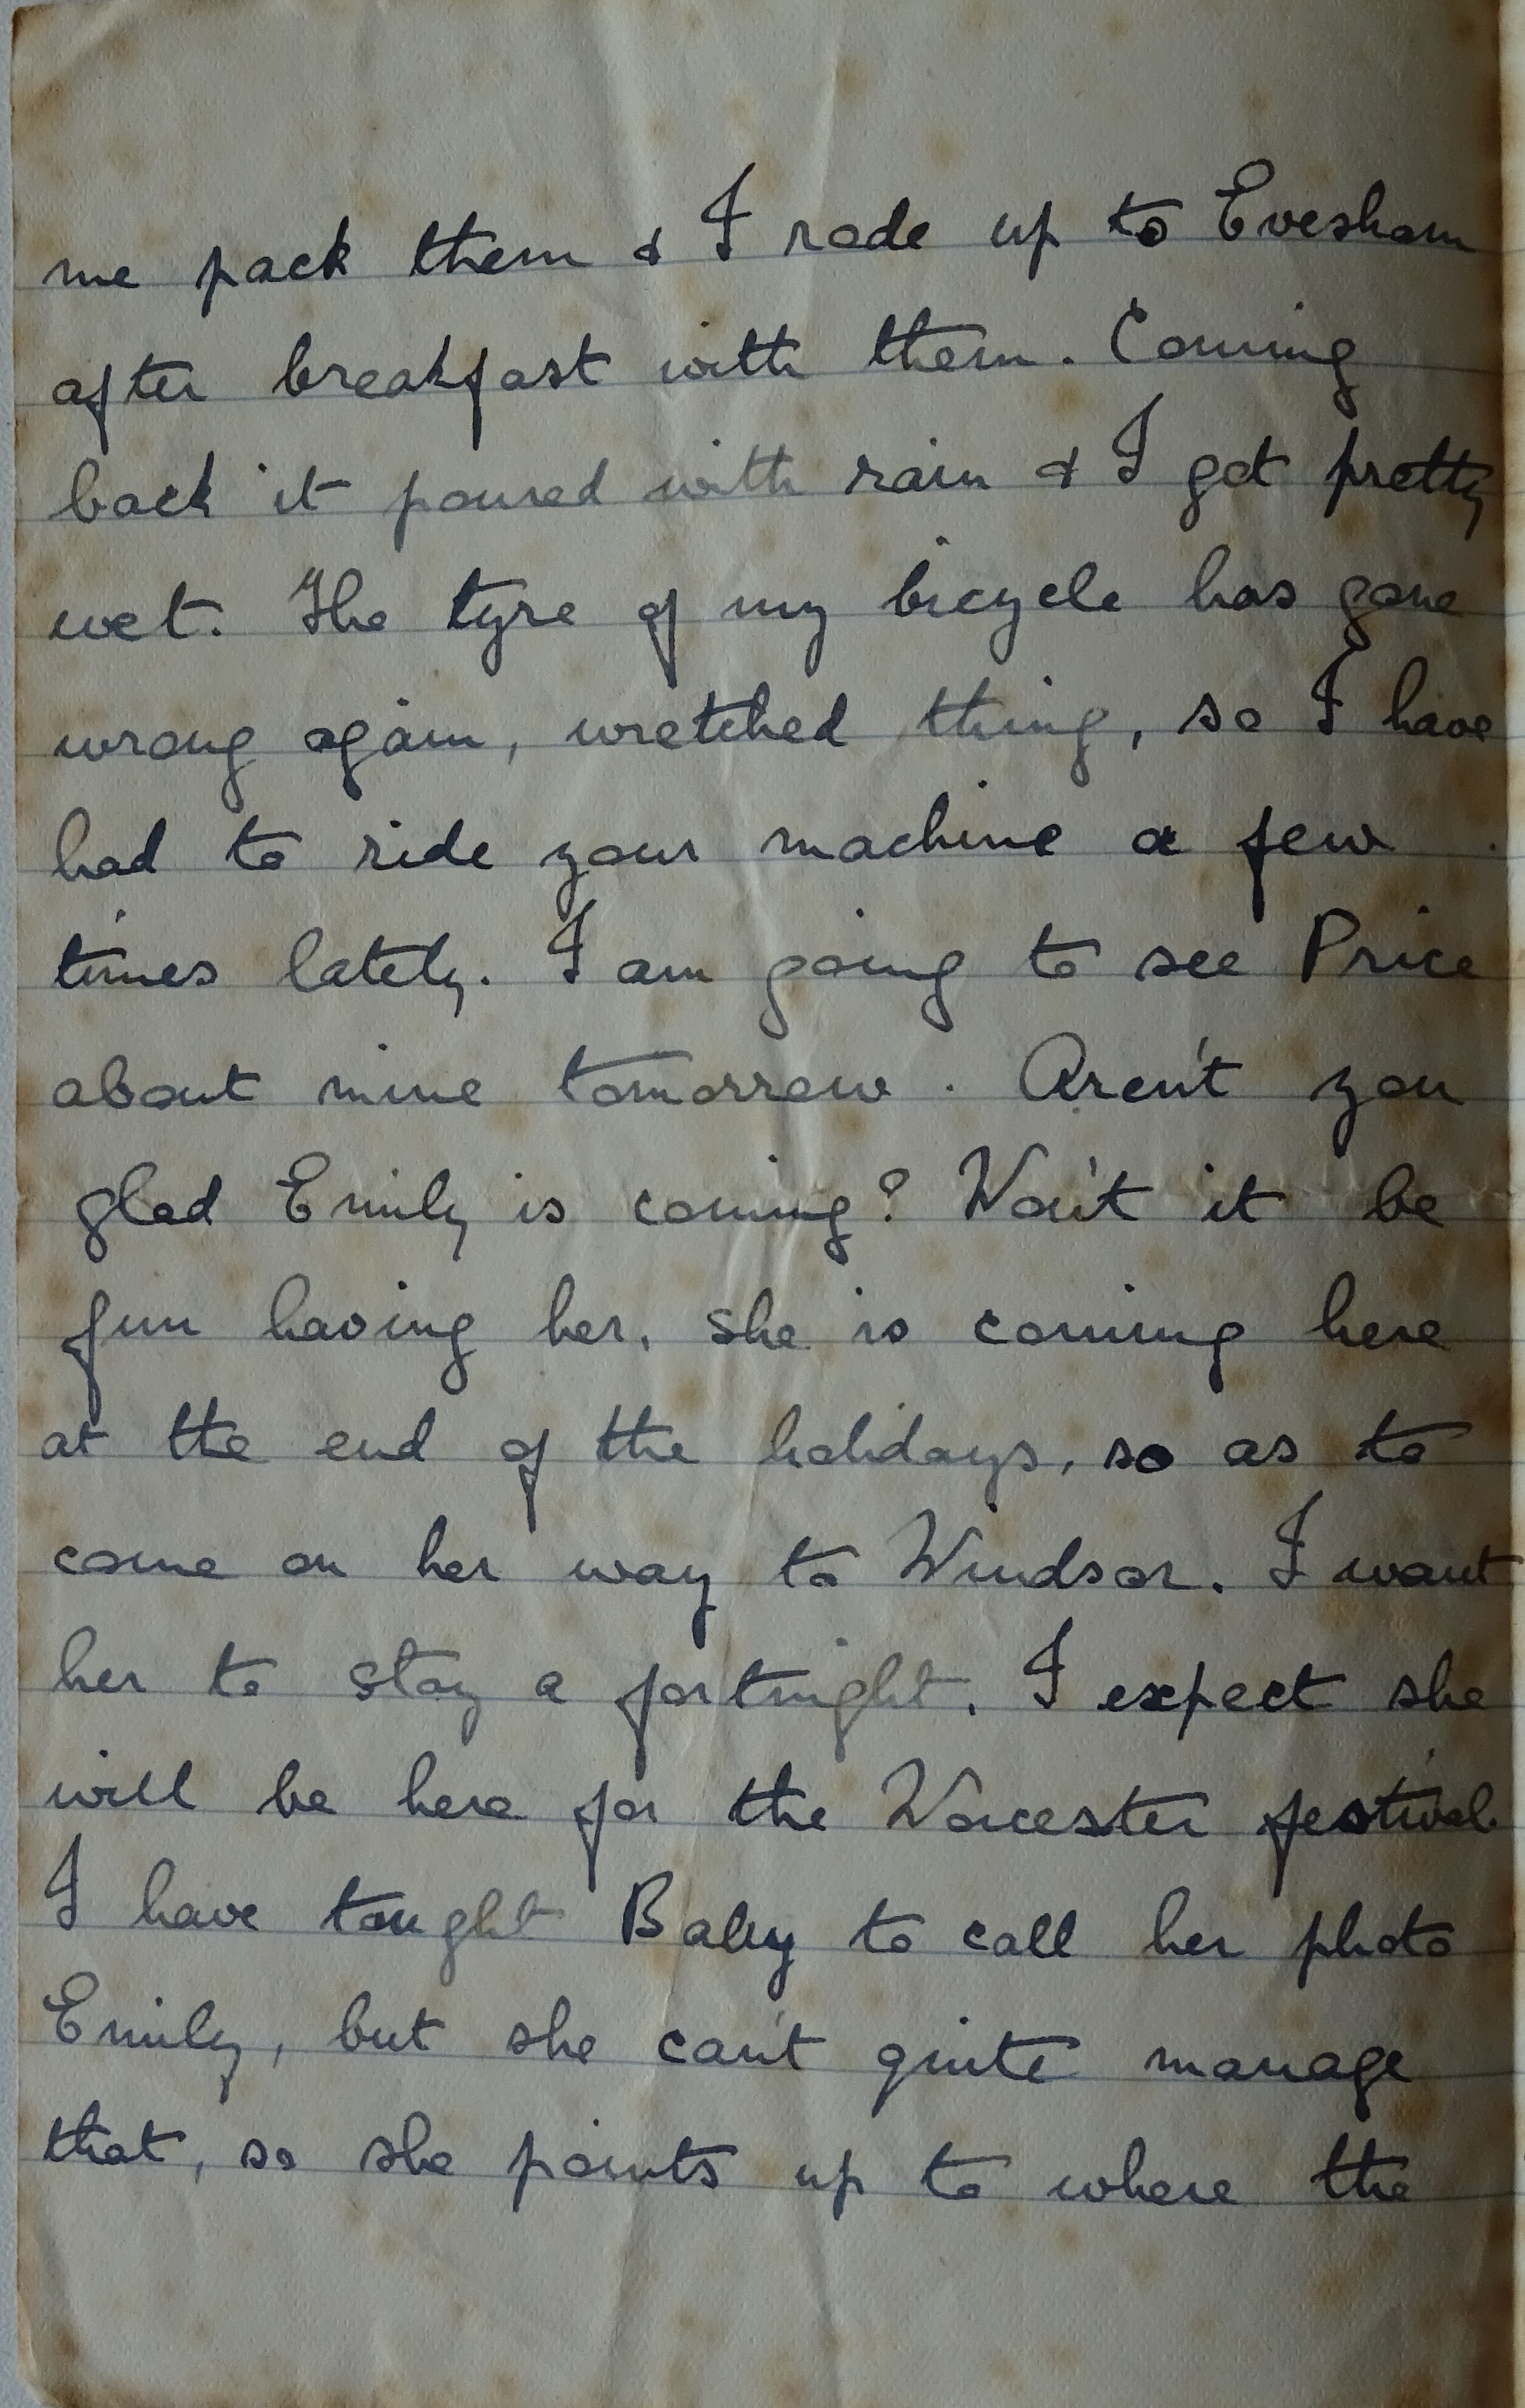 me pack them & I rode up to Evesham
after breakfast with them. Coming
back it poured with rain & I got pretty
wet. The tyre of my bicycle has gone
wrong again, wretched thing, so I have
had to ride your machine a few
times lately. I am going to see Price
about mine tomorrow. Aren't you
glad Emily is coming? Won't it be
fun having her, she is coming here
at the end of the holidays, so as to
come on her way to Windsor. I want
her to stay a fortnight. I expect she
will be here for the Worcester festival.
I have taught Baby to call her photo
Emily, but she can't quite manage
that, so she points up to where the